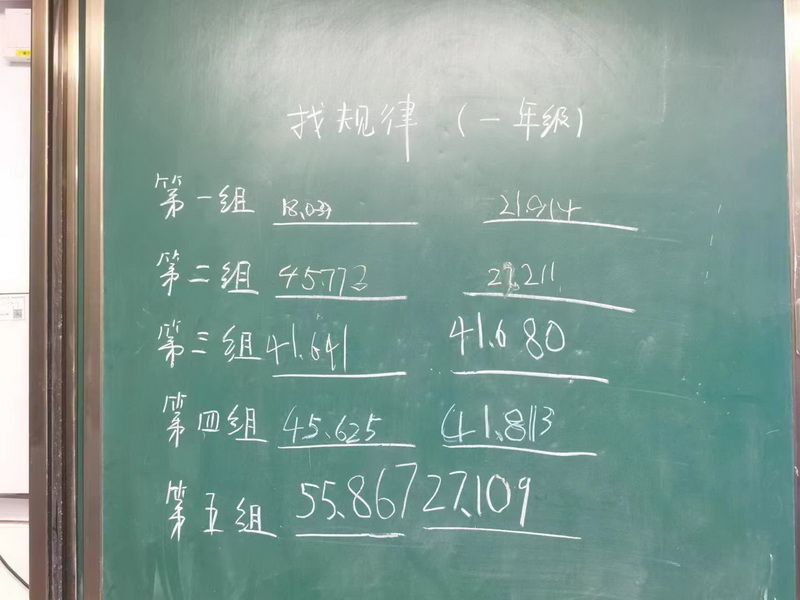 找规律（一年级）
第一组 18.039 21.914
第二组 45.773 27.211
第三组 41.641 41.680
第四组 45.625 41.813
第五组 55.867 27.109